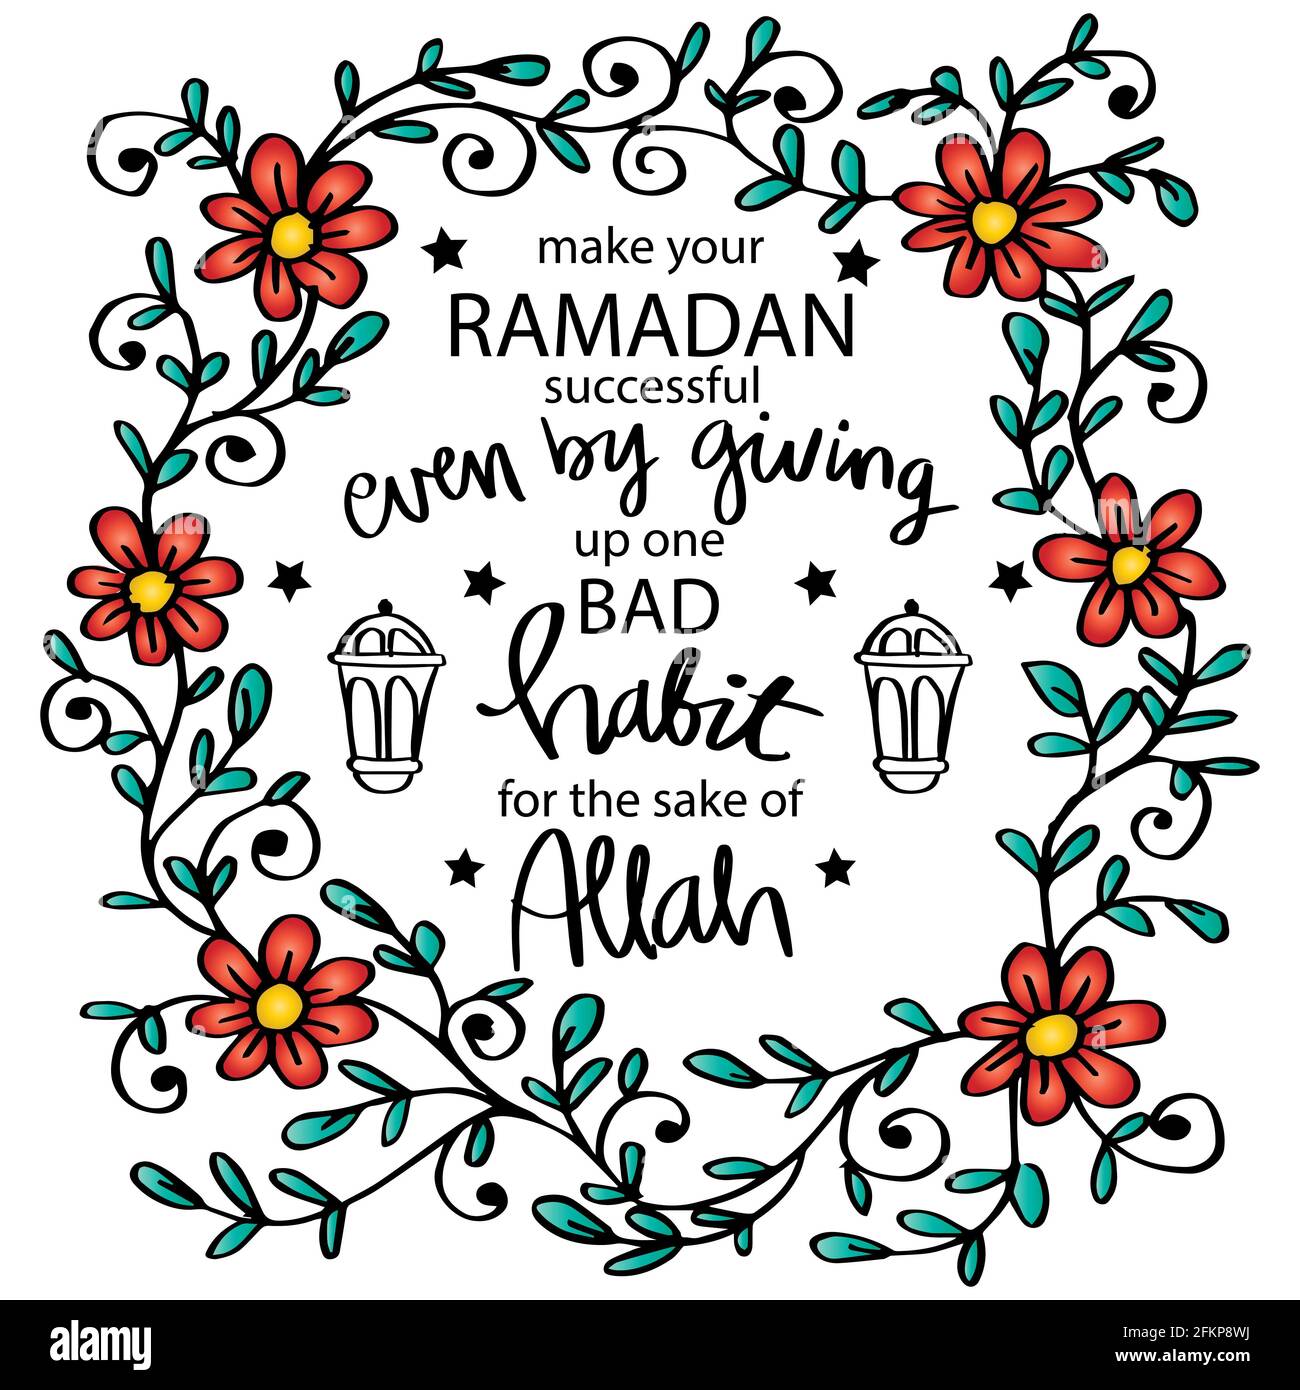 make your
RAMADAN
successful
even by giving
up one
BAD
habit
for the sake of
Allah
alamy
Image ID: 2FKP8WJ
www.alamy.com